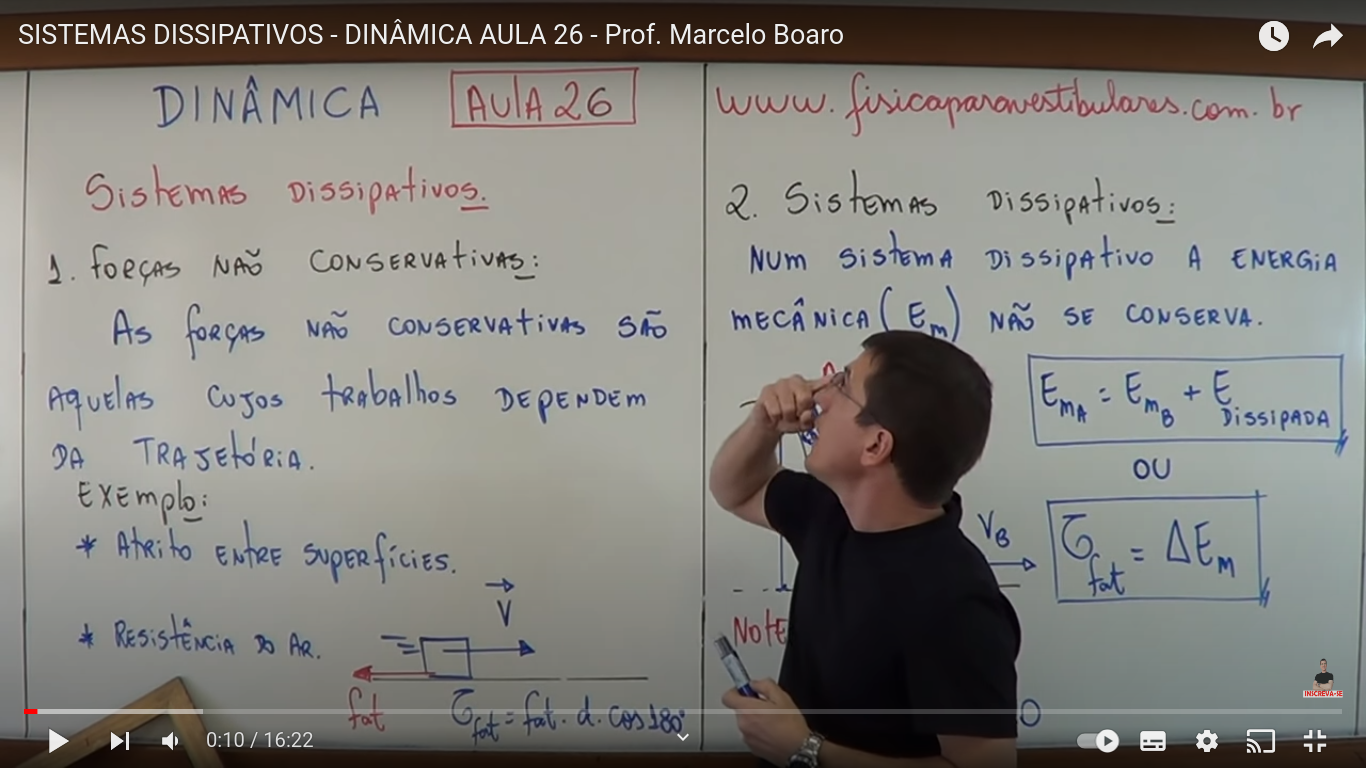 SISTEMAS DISSIPATIVOS - DINÂMICA AULA 26 - Prof. Marcelo Boaro
DINÂMICA AULA 26
Sistemas Dissipativos.
1. Forças não conservativas:
As forças não conservativas são
aquelas cujos trabalhos dependem
da trajetória.
Exemplo:
* Atrito entre superfícies.
* Resistência do ar.
V
fat
τfat = fat . d . cos 180°
www.fisicaparavestibulares.com.br
2. Sistemas Dissipativos:
Num sistema dissipativo a energia
mecânica (Em) não se conserva.
EmA = EmB + E DISSIPADA
OU
τfat = ΔEm
VB
NOTE
0
INSCREVA-SE
0:10 / 16:22